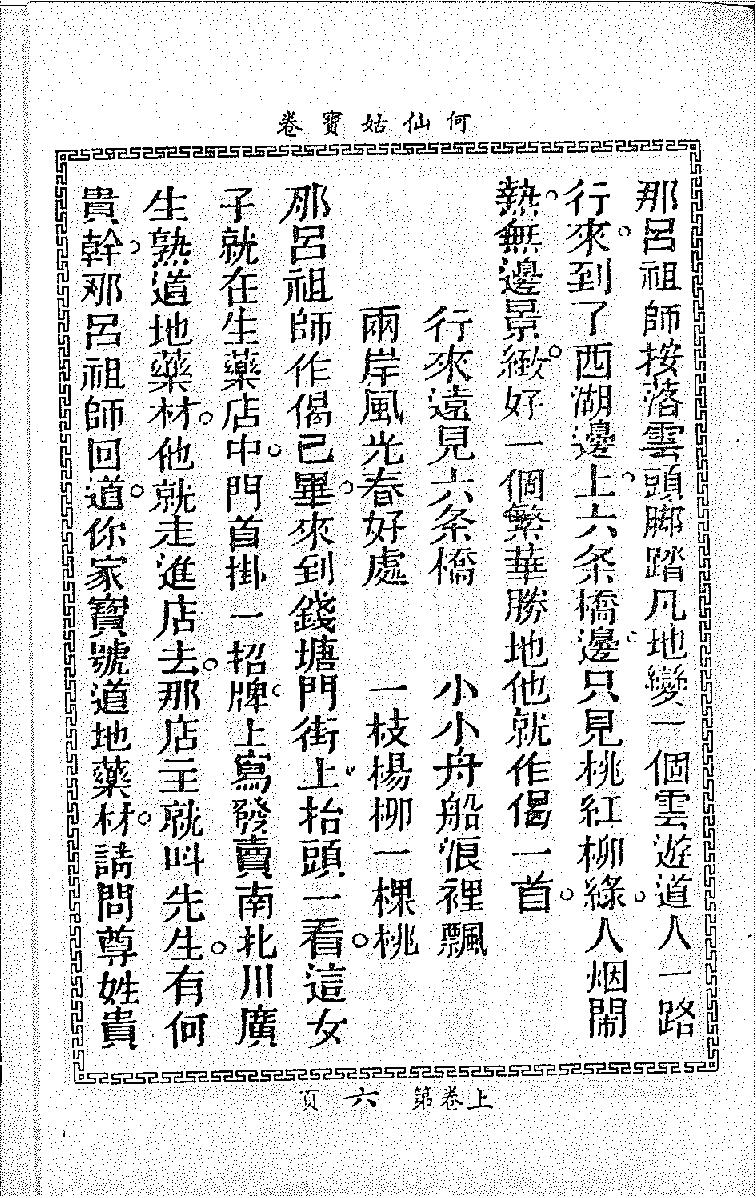 何仙姑寶卷
那呂祖師按落雲頭脚踏凡地變一個雲遊道人一路
行來。到了西湖邊上。六条橋邊。只見桃紅柳綠。人烟鬧
熱。無邊景緻。好一個繁華勝地他就作偈一首。
行來遠見六条橋　小小舟船浪裡飄
兩岸風光春好處　一枝楊柳一棵桃
那呂祖師作偈已畢。來到錢塘門街上。抬頭一看。這女
子就在生藥店中。門首掛一招牌。上寫發賣南北川廣
生熟道地藥材。他就走進店去。那店主就叫先生。有何
貴幹。那呂祖師回道。你家寶號道地藥材。請問尊姓貴
上卷第六頁